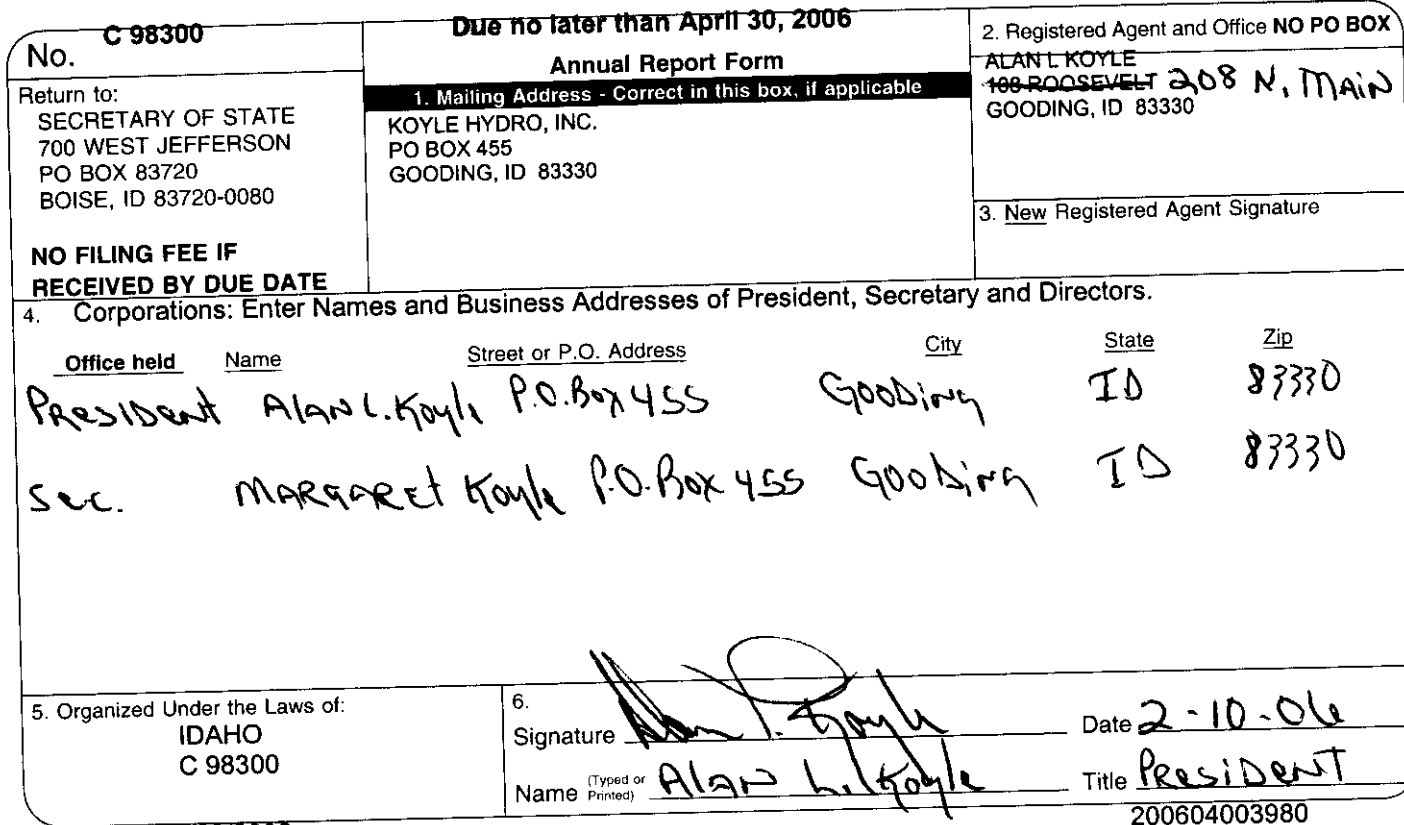 No. C 98300
Return to:
SECRETARY OF STATE
700 WEST JEFFERSON
PO BOX 83720
BOISE, ID 83720-0080
NO FILING FEE IF
RECEIVED BY DUE DATE
Due no later than April 30, 2006
Annual Report Form
1. Mailing Address - Correct in this box, if applicable
KOYLE HYDRO, INC.
PO BOX 455
GOODING, ID 83330
2. Registered Agent and Office NO PO BOX
ALAN L KOYLE
108 ROOSEVELT 208 N. MAIN
GOODING, ID 83330
3. New Registered Agent Signature
4. Corporations: Enter Names and Business Addresses of President, Secretary and Directors.
Office held Name Street or P.O. Address City State Zip
President Alan L. Koyle P.O. Box 455 Gooding ID 83330
Sec. Margaret Koyle P.O. Box 455 Gooding ID 83330
5. Organized Under the Laws of:
IDAHO
C 98300
6.
Signature Alan L. Koyle Date 2-10-06
Name (Typed or Printed) Alan L. Koyle Title President
200604003980